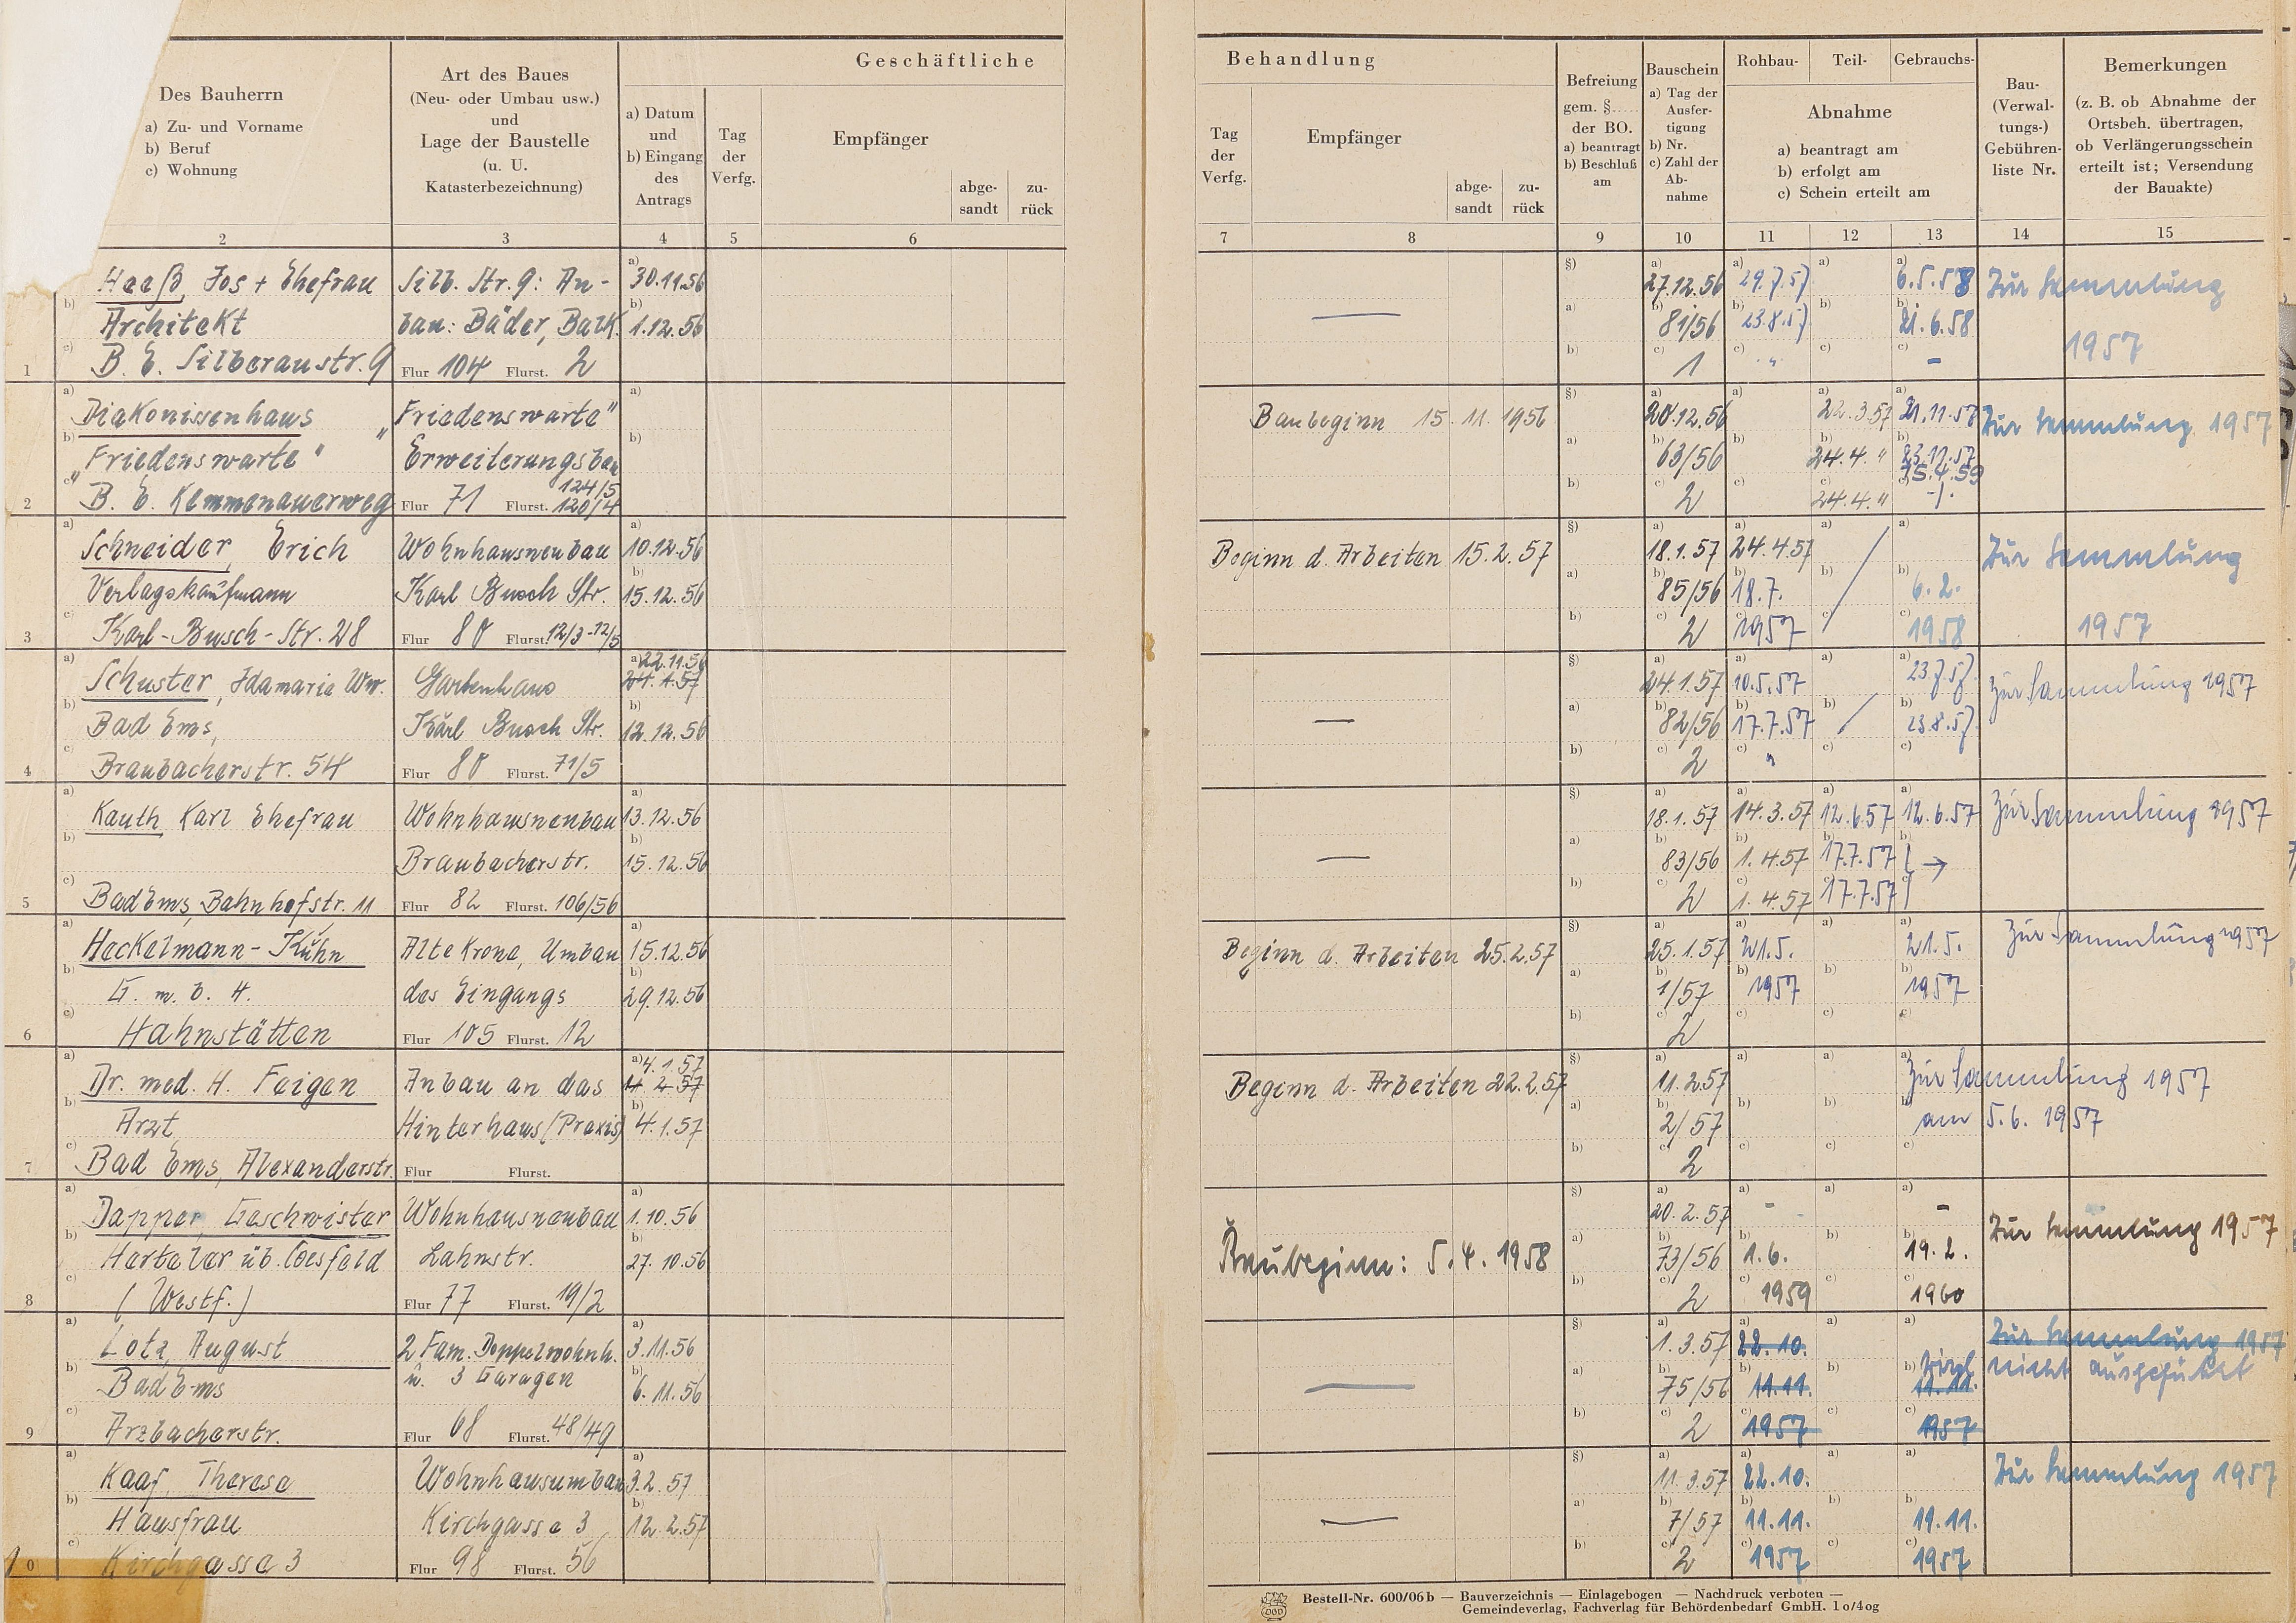 Geschäftliche
Behandlung
Des Bauherrn
a) Zu- und Vorname
b) Beruf
c) Wohnung
Art des Baues
(Neu- oder Umbau usw.)
und
Lage der Baustelle
(u. U.
Katasterbezeichnung)
a) Datum
und
b) Eingang
des
Antrags
Tag
der
Verfg.
Empfänger
abge-
sandt
zu-
rück
Tag
der
Verfg.
Empfänger
abge-
sandt
zu-
rück
Befreiung
gem. §.....
der BO.
a) beantragt
b) Beschluß
am
Bauschein
a) Tag der
Ausfer-
tigung
b) Nr.
c) Zahl der
Ab-
nahme
Rohbau- Teil- Gebrauchs-
Abnahme
a) beantragt am
b) erfolgt am
c) Schein erteilt am
Bau-
(Verwal-
tungs-)
Gebühren-
liste Nr.
Bemerkungen
(z. B. ob Abnahme der
Ortsbeh. übertragen,
ob Verlängerungsschein
erteilt ist; Versendung
der Bauakte)
2 3 4 5 6 7 8 9 10 11 12 13 14 15
Haaß, Jos + Ehefrau Silb. Str. 9: An- 30.11.56 27.12.56 29.7.57 6.5.58 Zur Sammlung
Architekt bau: Bäder, Balk. 1.12.56 — 81/56 23.8.57 21.6.58
1 B. E. Silberaustr. 9 Flur 104 Flurst. 2 1 " – 1957
Diakonissenhaus "Friedenswarte" Baubeginn 15.11.1956 20.12.56 22.3.57 21.11.57 Zur Sammlung 1957
"Friedenswarte" Erweiterungsbau 63/56 24.4. " 23.11.57
124/5 25.4.59
2 B. E. Kemmenauerweg Flur 71 Flurst. 120/4 2 24.4. " -/.
Schneider, Erich Wohnhausneubau 10.12.56 Beginn d. Arbeiten 15.2.57 18.1.57 24.4.57 Zur Sammlung
Verlagskaufmann Karl Busch Str. 15.12.56 85/56 18.7. 6.2.
3 Karl-Busch-Str. 28 Flur 80 Flurst. 12/3-12/5 2 1957 1958 1957
22.11.56
Schuster, Idamarie Ww. Gartenhaus 24.1.57 24.1.57 10.5.57 23.7.57 Zur Sammlung 1957
Bad Ems, Karl Busch Str. 12.12.56 — 82/56 17.7.57 23.8.57
4 Braubacherstr. 54 Flur 80 Flurst. 71/5 2 "
Kauth Karl Ehefrau Wohnhausneubau 13.12.56 18.1.57 14.3.57 12.6.57 12.6.57 Zur Sammlung 1957
Braubacherstr. 15.12.56 — 83/56 1.4.57 17.7.57 →
5 Bad Ems, Bahnhofstr. 11 Flur 82 Flurst. 106/56 2 1.4.57 17.7.57
Heckelmann-Kuhn Alte Krone, Umbau 15.12.56 Beginn d. Arbeiten 25.2.57 25.1.57 21.5. 21.5. Zur Sammlung 1957
G. m. b. H. des Eingangs 29.12.56 1/57 1957 1957
6 Hahnstätten Flur 105 Flurst. 12 2
4.1.57
Dr. med. H. Feigen Anbau an das 11.2.57 Beginn d. Arbeiten 22.2.57 11.2.57 Zur Sammlung 1957
Arzt Hinterhaus (Praxis) 4.1.57 2/57 am 5.6.1957
7 Bad Ems, Alexanderstr. Flur Flurst. 2
Dapper, Geschwister Wohnhausneubau 1.10.56 20.2.57 - – Zur Sammlung 1957
üb. Coesfeld Lahnstr. 27.10.56 Baubeginn: 5.4.1958 73/56 1.6. 19.2.
8 (Westf.) Flur 77 Flurst. 19/2 2 1959 1960
Lotz, August 2 Fam. Doppelwohnh. 3.11.56 1.3.57 22.10. Zur Sammlung 1957
Bad Ems u. 3 Garagen 6.11.56 — 75/56 11.11. 11.11. nicht ausgeführt
9 Arzbacherstr. Flur 68 Flurst. 48/49 2 1957 1957
Kaaf, Therese Wohnhausumbau 3.2.57 11.3.57 22.10. Zur Sammlung 1957
Hausfrau Kirchgasse 3 12.2.57 — 7/57 11.11. 11.11.
10 Kirchgasse 3 Flur 98 Flurst. 56 2 1957 1957
Bestell-Nr. 600/06 b — Bauverzeichnis — Einlagebogen — Nachdruck verboten —
Gemeindeverlag, Fachverlag für Behördenbedarf GmbH. 10/4og